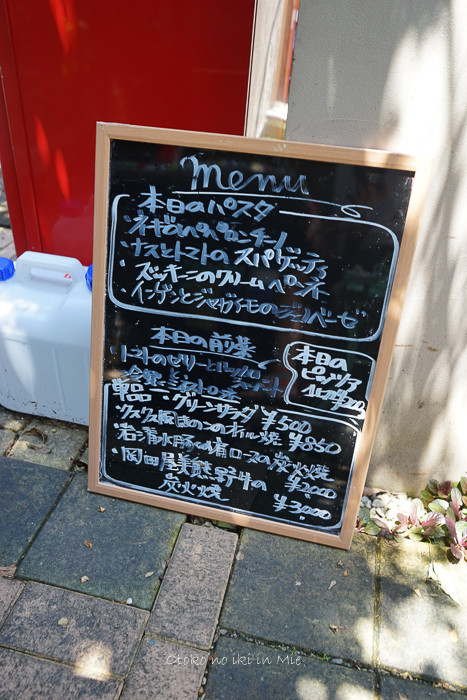 menu
本日のパスタ
・ネギのペペロンチーノ
・ナスとトマトのスパゲッティ
・ズッキーニのクリームペンネ
・インゲンとジャガイモのジェノベーゼ
本日の前菜
・トマトのゼリーと
本日の
ピッツァ
単品・グリーンサラダ ¥500
の オイル焼 ¥850
・岩清水豚の肩ロースの炭火焼
¥2000
・岡田屋美熊野牛の
炭火焼 ¥3000
Otoko no iki in Mie